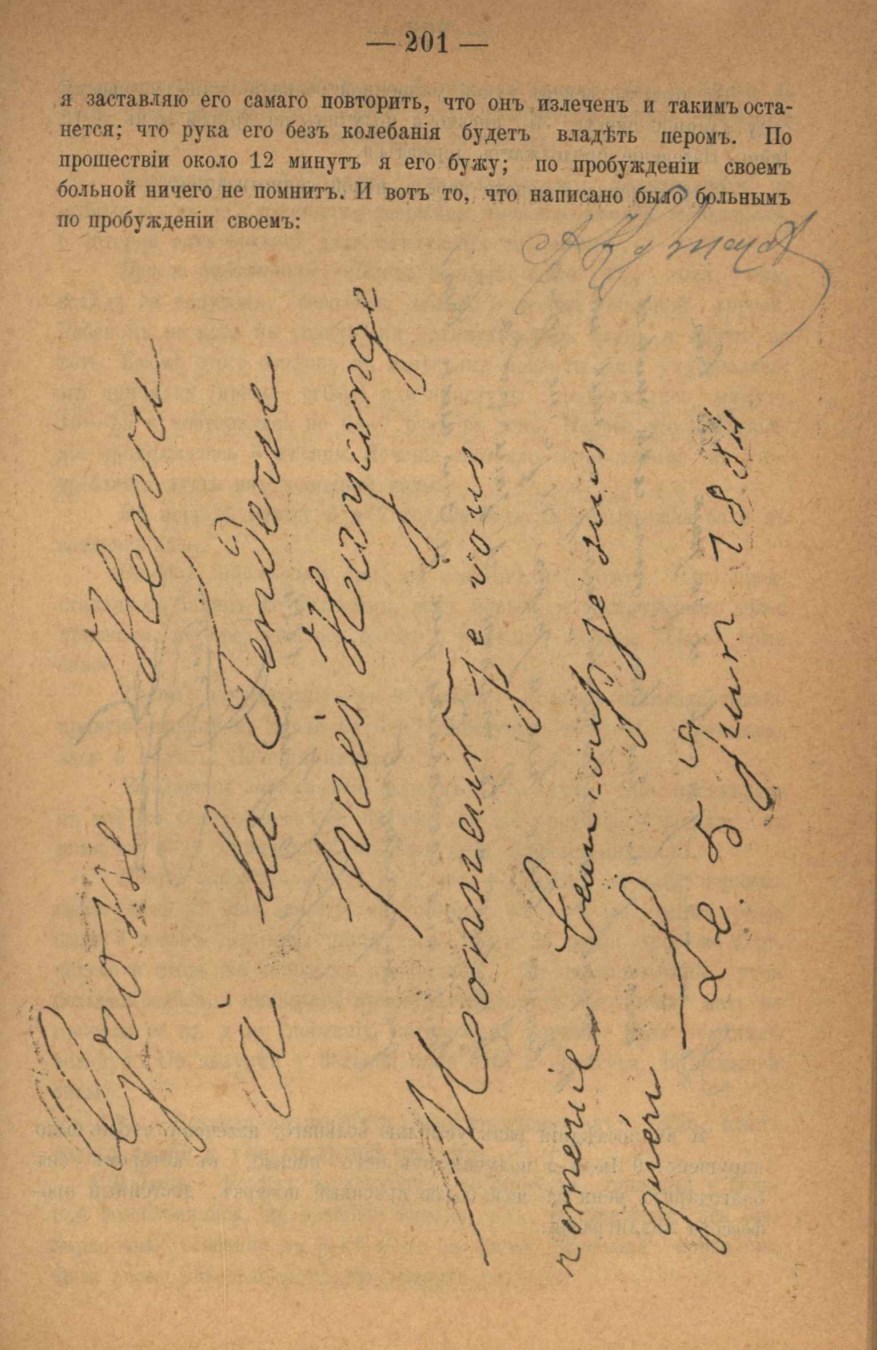 — 201 —
я заставляю его самаго повторить, что онъ излеченъ и такимъ оста-
нется; что рука его безъ колебанія будетъ владѣть перомъ. По
прошествіи около 12 минутъ я его бужу; по пробужденіи своемъ
больной ничего не помнитъ. И вотъ то, что написано было больнымъ
по пробужденіи своемъ:
Grosse Henri
à la Tenderie
près Hayange
Monsieur je vous
remerie beaucoup je suis
guéri
Le 5 Juin 1884